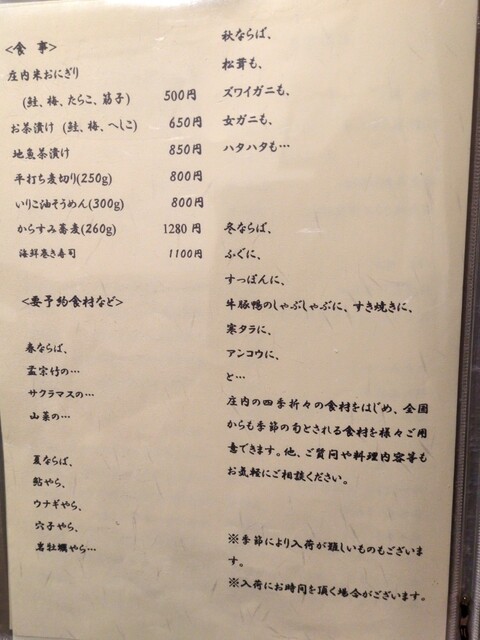 <食 事>
庄内米おにぎり
(鮭、梅、たらこ、筋子) 500円
お茶漬け (鮭、梅、へしこ) 650円
地魚茶漬け 850円
平打ち麦切り(250g) 800円
いりこ油そうめん(300g) 800円
からすみ蕎麦(260g) 1280円
海鮮巻き寿司 1100円
<要予約食材など>
春ならば、
孟宗竹の…
サクラマスの…
山菜の…
夏ならば、
鮎やら、
ウナギやら、
穴子やら、
岩牡蠣やら…
秋ならば、
松茸も、
ズワイガニも、
女ガニも、
ハタハタも…
冬ならば、
ふぐに、
すっぽんに、
牛豚鴨のしゃぶしゃぶに、すき焼きに、
寒タラに、
アンコウに、
と…
庄内の四季折々の食材をはじめ、全国
からも季節の旬とされる食材を様々ご用
意できます。他、ご質問や料理内容等も
お気軽にご相談ください。
※季節により入荷が難しいものもございま
す。
※入荷にお時間を頂く場合がございます。